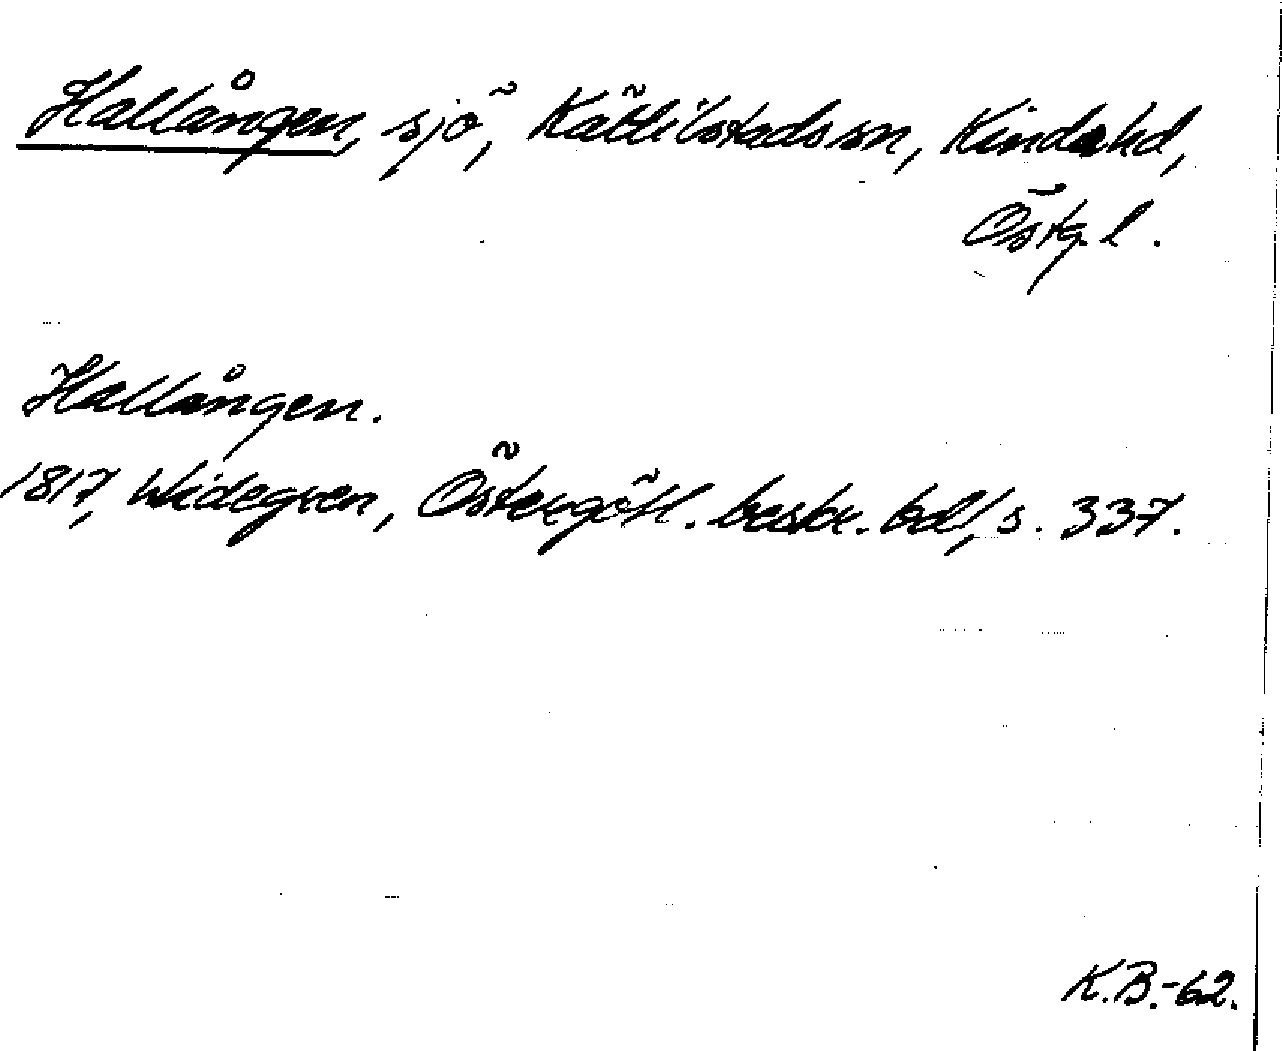 Hallången, sjö, Kättilstads sn, Kinda hd,
Östg. l.
Hallången.
1817, Widegren, Östergötl. beskr. bd 1, s. 337.
K.B.-62.